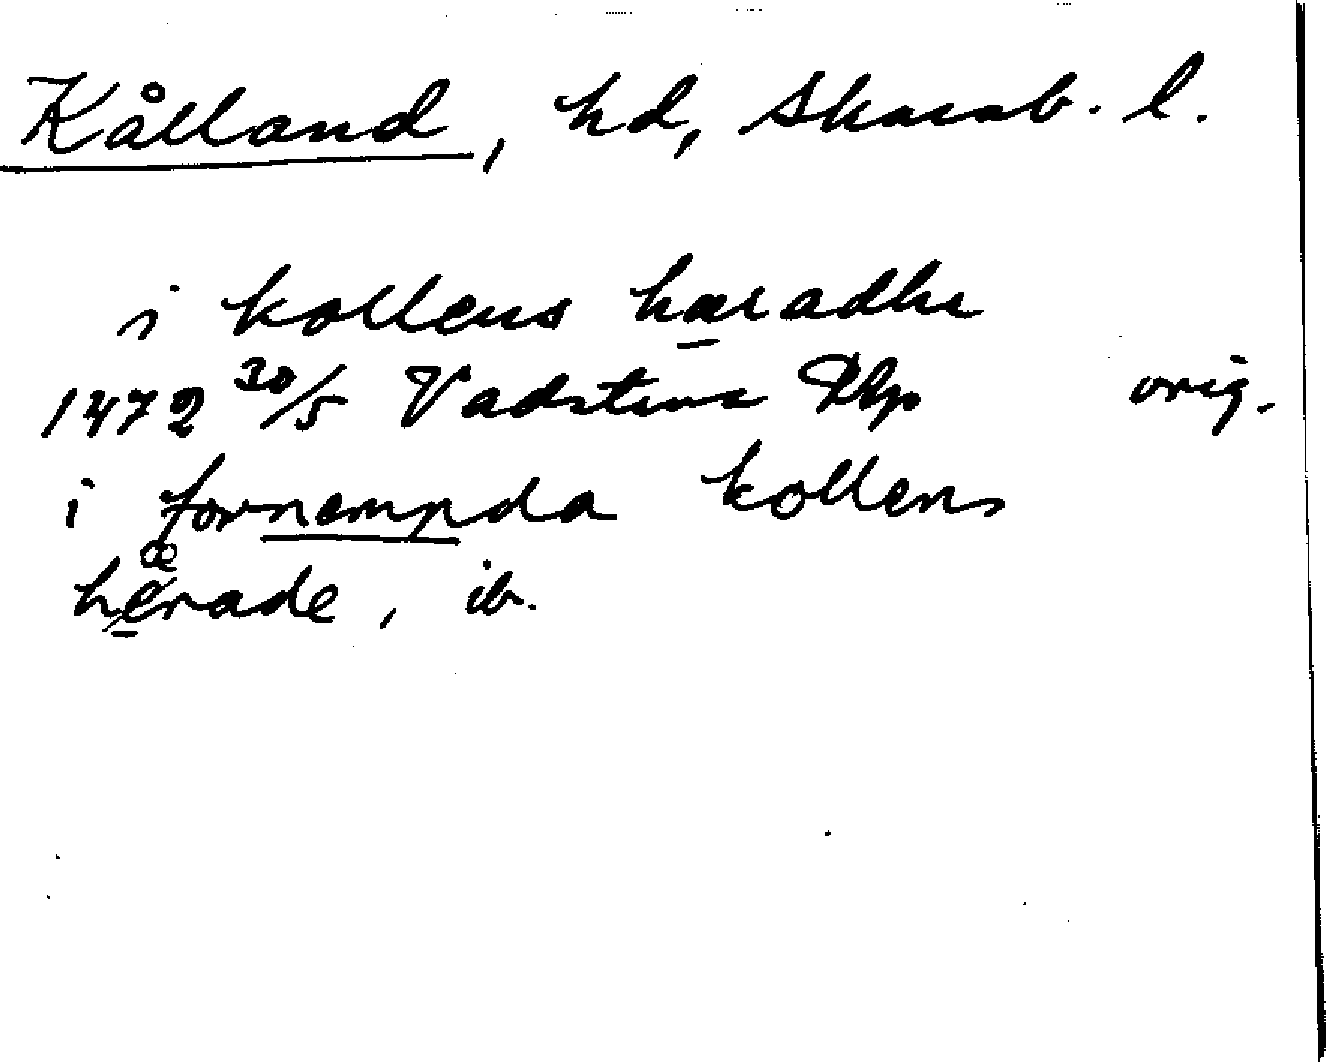 Kålland, hd, Skarab. l.
i kollens hæradhe
1472 30/5 Vadstena RAp orig.
i fornempda kollens
hærade, ib.